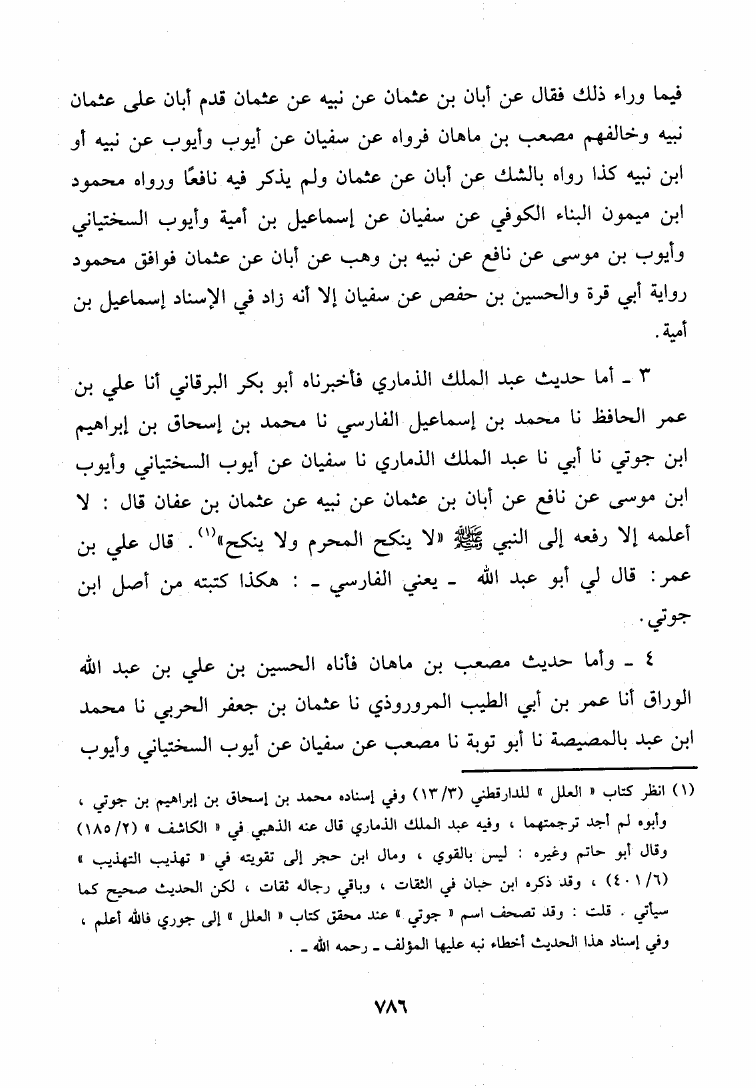 فيما وراء ذلك فقال عن أبان بن عثمان عن نبيه عن عثمان قدم أبان على عثمان
نبيه وخالفهم مصعب بن ماهان فرواه عن سفيان عن أيوب وأيوب عن نبيه أو
ابن نبيه كذا رواه بالشك عن أبان عن عثمان ولم يذكر فيه نافعًا ورواه محمود
ابن ميمون البناء الكوفي عن سفيان عن إسماعيل بن أمية وأيوب السختياني
وأيوب بن موسى عن نافع عن نبيه بن وهب عن أبان عن عثمان فوافق محمود
رواية أبي قرة والحسين بن حفص عن سفيان إلا أنه زاد في الإسناد إسماعيل بن
أمية .
٣ ـ أما حديث عبد الملك الذماري فأخبرناه أبو بكر البرقاني أنا علي بن
عمر الحافظ نا محمد بن إسماعيل الفارسي نا محمد بن إسحاق بن إبراهيم
ابن جوتي نا أبي نا عبد الملك الذماري نا سفيان عن أيوب السختياني وأيوب
ابن موسى عن نافع عن أبان بن عثمان عن نبيه عن عثمان بن عفان قال : لا
أعلمه إلا رفعه إلى النبي ﷺ «لا ينكح المحرم ولا ينكح»(١) . قال علي بن
عمر: قال لي أبو عبد الله ـ يعني الفارسي ـ : هكذا كتبته من أصل ابن
جوتي .
٤ ـ وأما حديث مصعب بن ماهان فأناه الحسين بن علي بن عبد الله
الوراق أنا عمر بن أبي الطيب المروروذي نا عثمان بن جعفر الحربي نا محمد
ابن عبد بالمصيصة نا أبو توبة نا مصعب عن سفيان عن أيوب السختياني وأيوب
(١) انظر كتاب « العلل » للدارقطني (١٣/٣) وفي إسناده محمد بن إسحاق بن إبراهيم بن جوتي ،
وأبوه لم أجد ترجمتهما ، وفيه عبد الملك الذماري قال عنه الذهبي في « الكاشف » (١٨٥/٢)
وقال أبو حاتم وغيره : ليس بالقوي ، ومال ابن حجر إلى تقويته في « تهذيب التهذيب »
(٤٠١/٦) ، وقد ذكره ابن حبان في الثقات ، وباقي رجاله ثقات ، لكن الحديث صحيح كما
سيأتي . قلت : وقد تصحف اسم « جوتي » عند محقق كتاب « العلل » إلى جوري فالله أعلم ،
وفي إسناد هذا الحديث أخطاء نبه عليها المؤلف ـ رحمه الله ـ .
٧٨٦